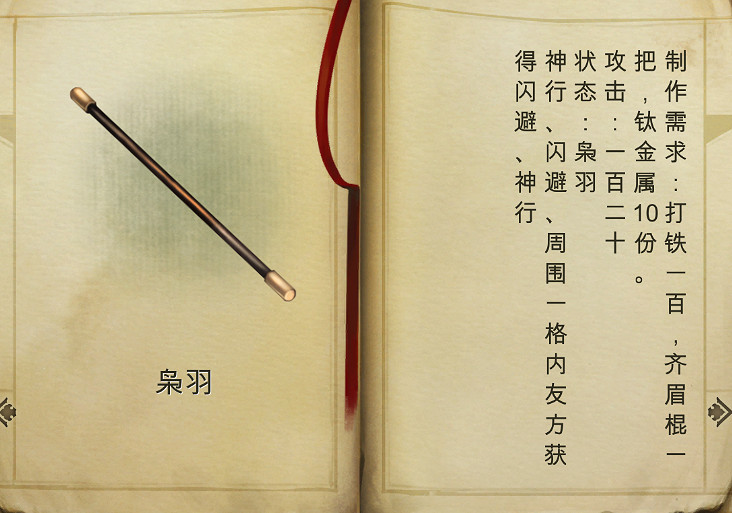 枭羽
制作需求：打铁一百，齐眉棍一
把，钛金属10份。
攻击：一百二十
状态：枭羽
神行、闪避、周围一格内友方获
得闪避、神行